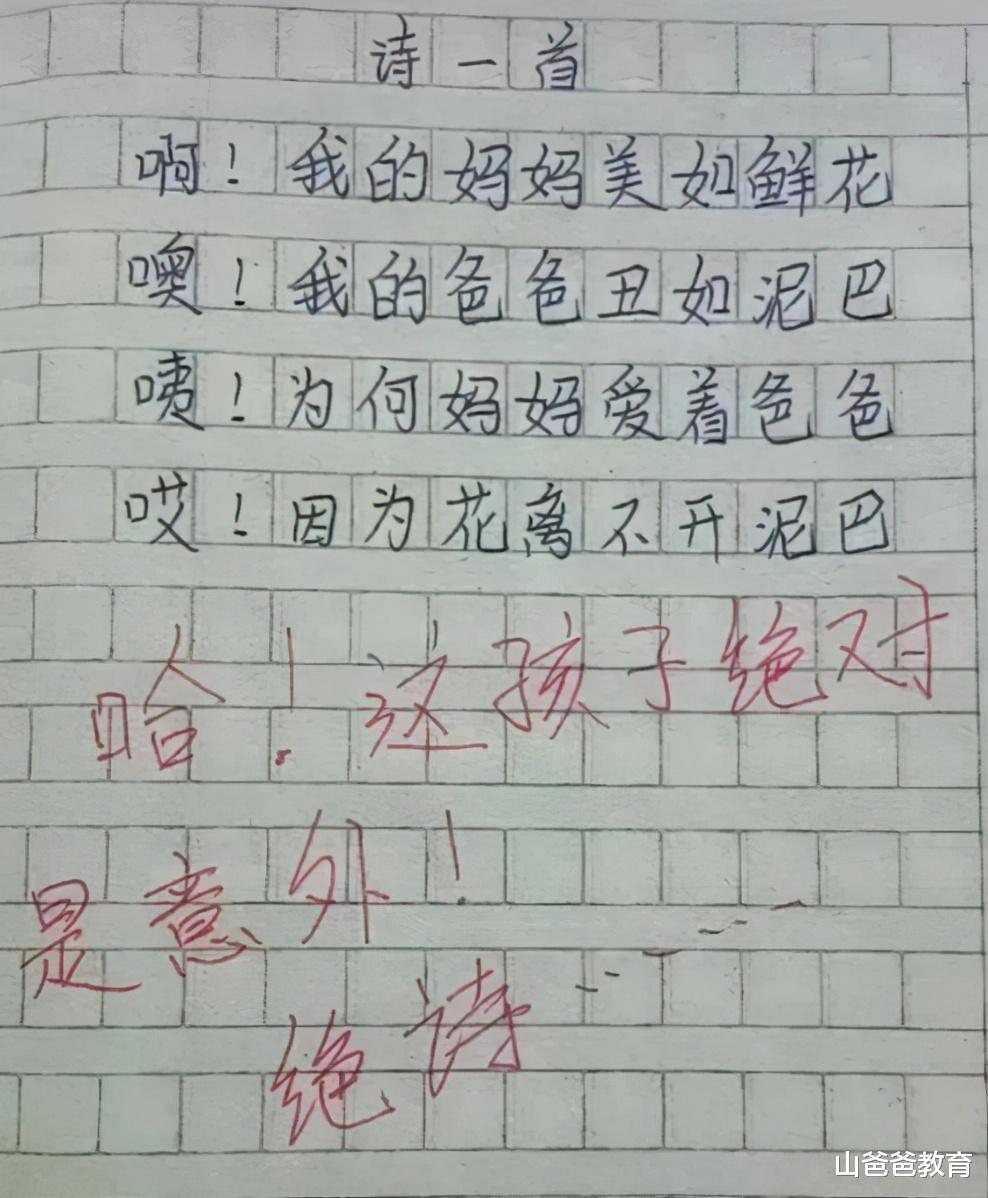 诗一首
啊！我的妈妈美如鲜花
噢！我的爸爸丑如泥巴
咦！为何妈妈爱着爸爸
哎！因为花离不开泥巴
哈！这孩子绝对
是意外！
绝诗
山爸爸教育